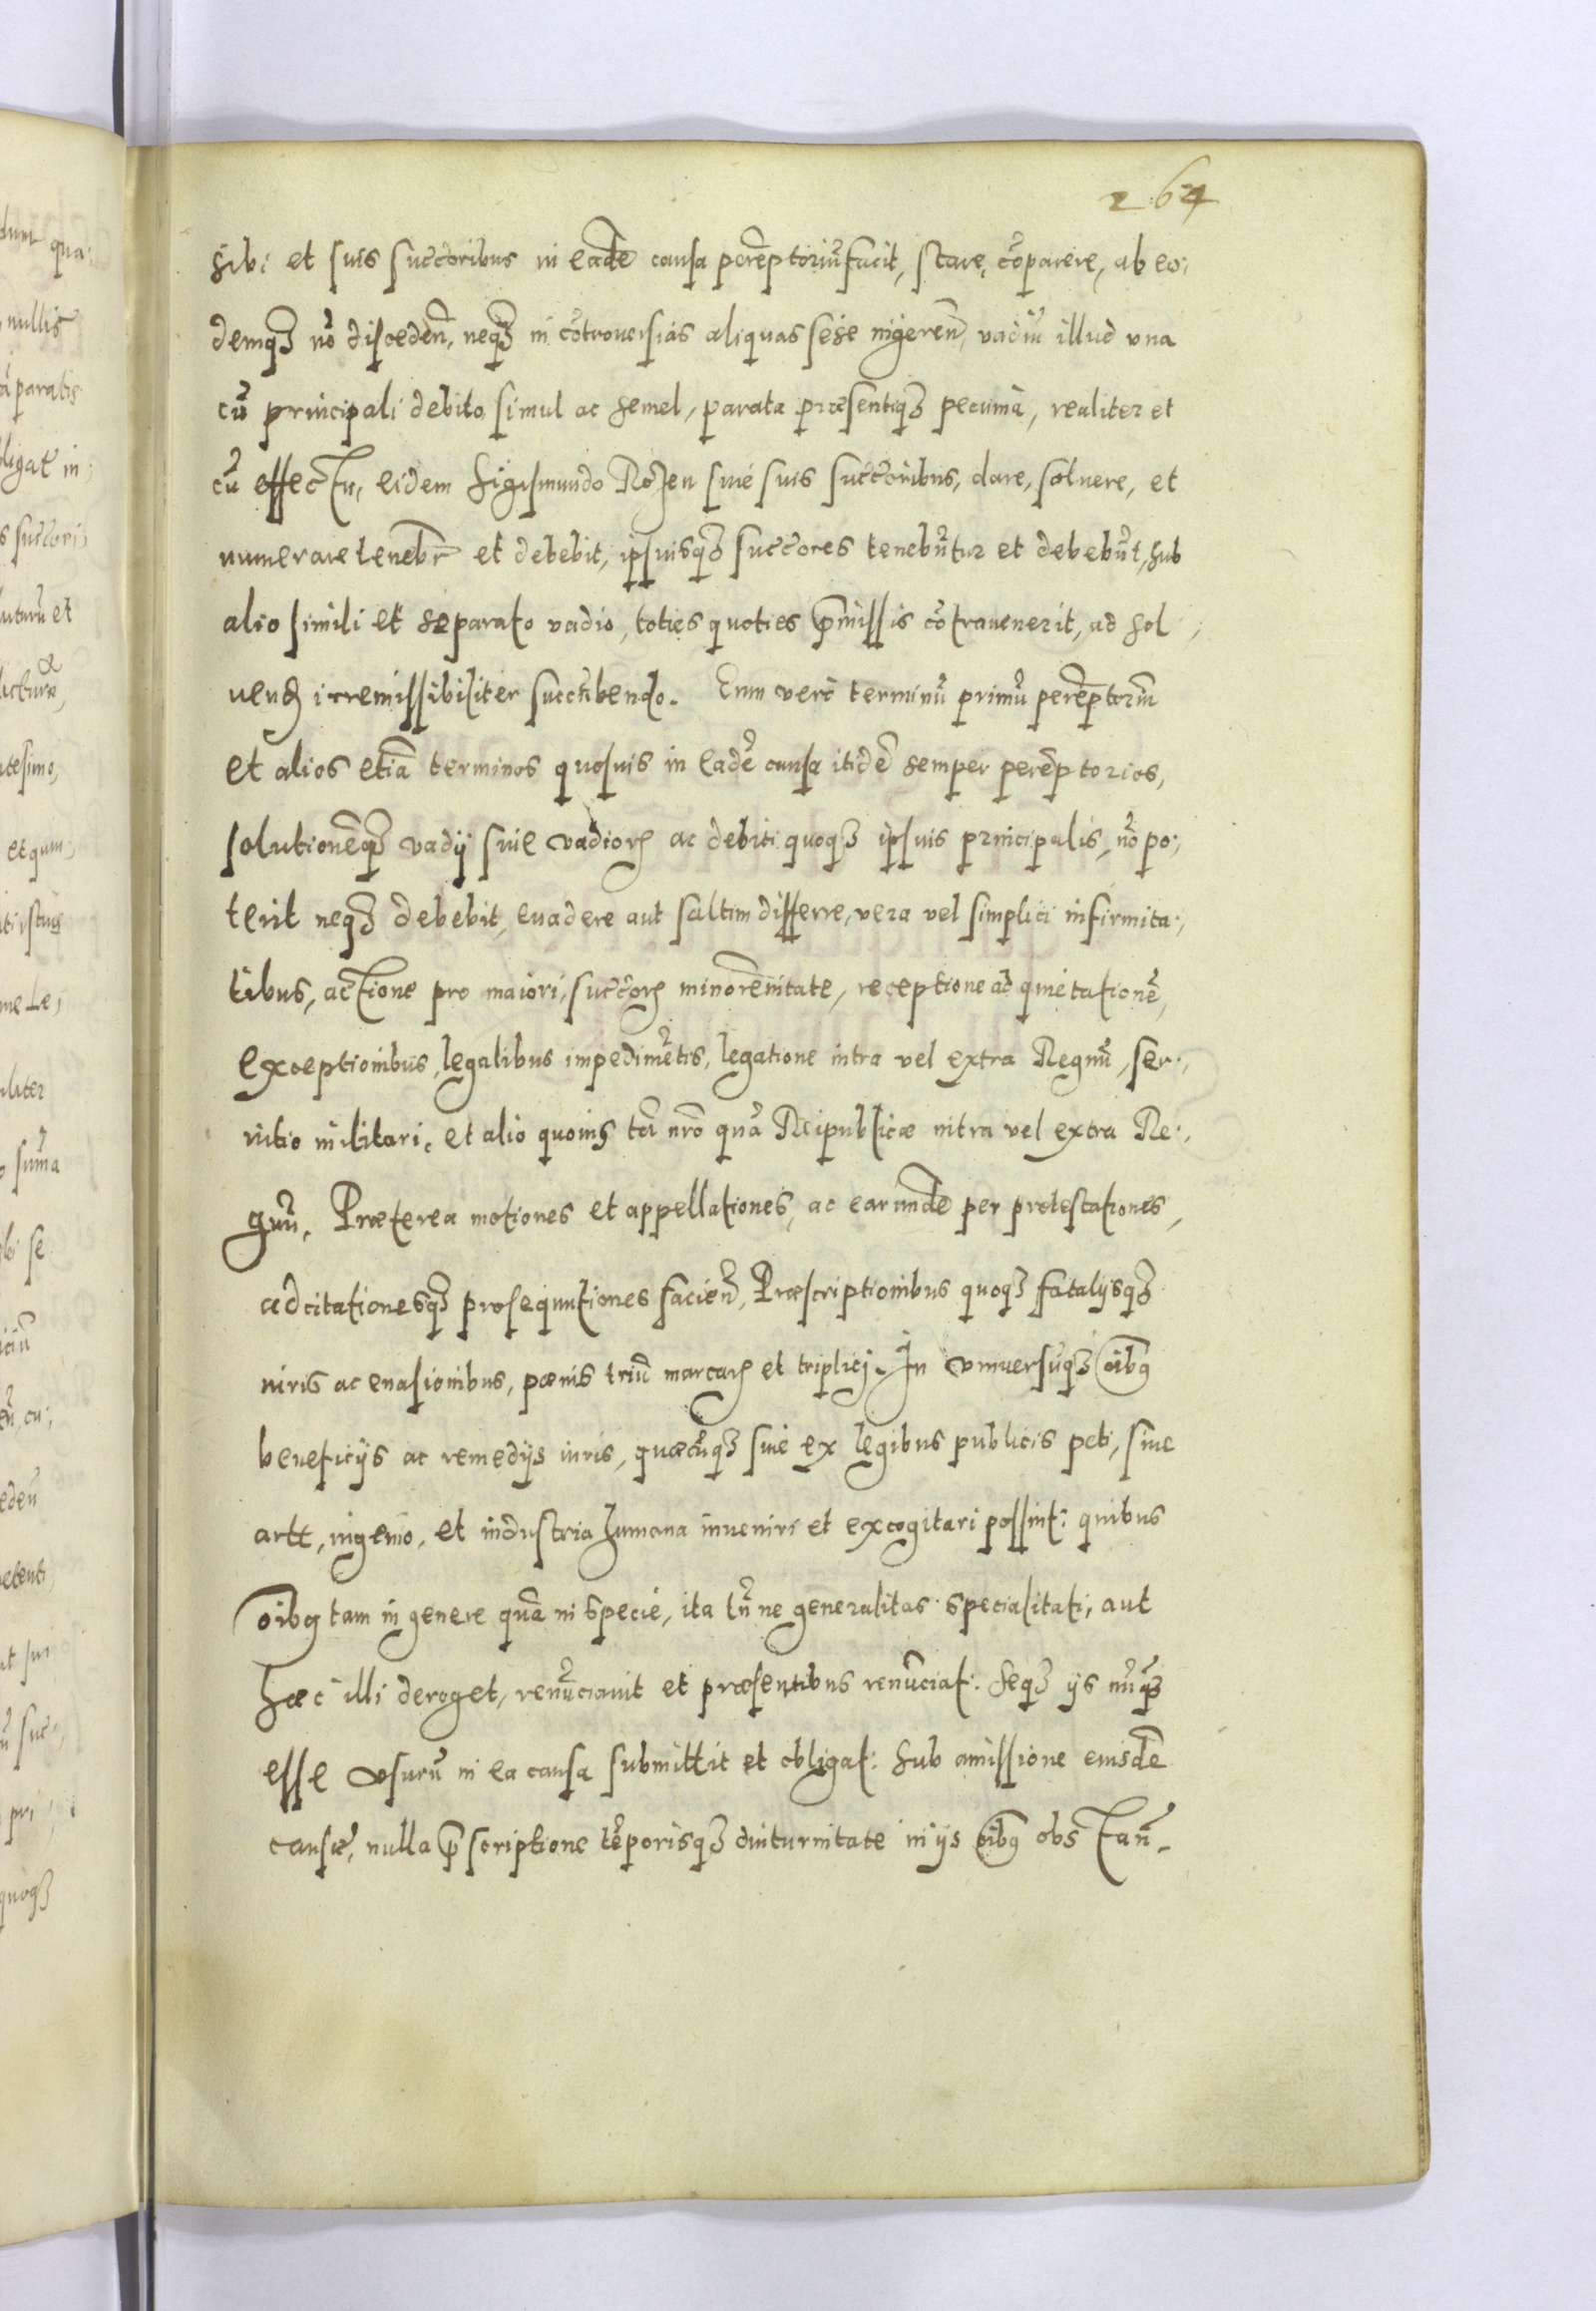 264
sibi et suis succoribus in eadē causa perēptoriū facit, stare, cōparere, ab eo;
demq3 nō disceden̄, neq3 in cōtrouersias aliquas sese ingeren̄, vadiū illud vna
cū principali debito simul ac semel, parata præsentiq3 pecunia, realiter et
cū effectu, eidem Sigismundo Rozen siue suis succoribus, dare, soluere, et
numerare tenebr̄ et debebit, ipsiusq3 succores tenebūtur et debebūt, sub
alio simili et separato vadio, toties quoties p̄missis cōtrauenerit, ad sol;
uend irremissibiliter succūbendo. Eum verò terminū primū perēptoriū
et alios etiā terminos quosuis in eadē causa itidē semper perēptorios,
solutionēq3 vadij siue vadiorꝝ ac debiti quoq3 ipsius principalis, nō po;
terit neq3 debebit, euadere aut saltim differre, vera vel simplici infirmita;
tibus, actione pro maiori, succorꝝ minorēnitate, receptione ad quietationē,
exceptionibus, legalibus impedimētis, legatione intra vel extra Regnū, ser;
uitio militari, et alio quouis tā nrō quā Reipublicæ intra vel extra Re;
gnū. Præterea motiones et appellationes, ac earundē per protestationes,
adcitationesq3 prosequutiones facien̄, Præscriptionibus quoq3 fatalijsq3
iuris ac euasionibus, pœnis triū marcarꝝ et triplici. In vniuersūq3 oib9
beneficijs ac remedijs iuris, quæcūq3 siue ex legibus publicis peti, siue
arte, ingenio, et industria humana inueniri et excogitari possint: quibus
oib9 tam in genere quā in specie, ita tn̄ ne generalitas specialitati, aut
hæc illi deroget, renūciauit et præsentibus renūciat: seq3 ijs nūq̄3
esse vsurū in ea causa submittit et obligat: sub amissione eiusdē
causæ, nulla p̄scriptione tēporisq3 diuturnitate in ijs oib9 obstan̄.